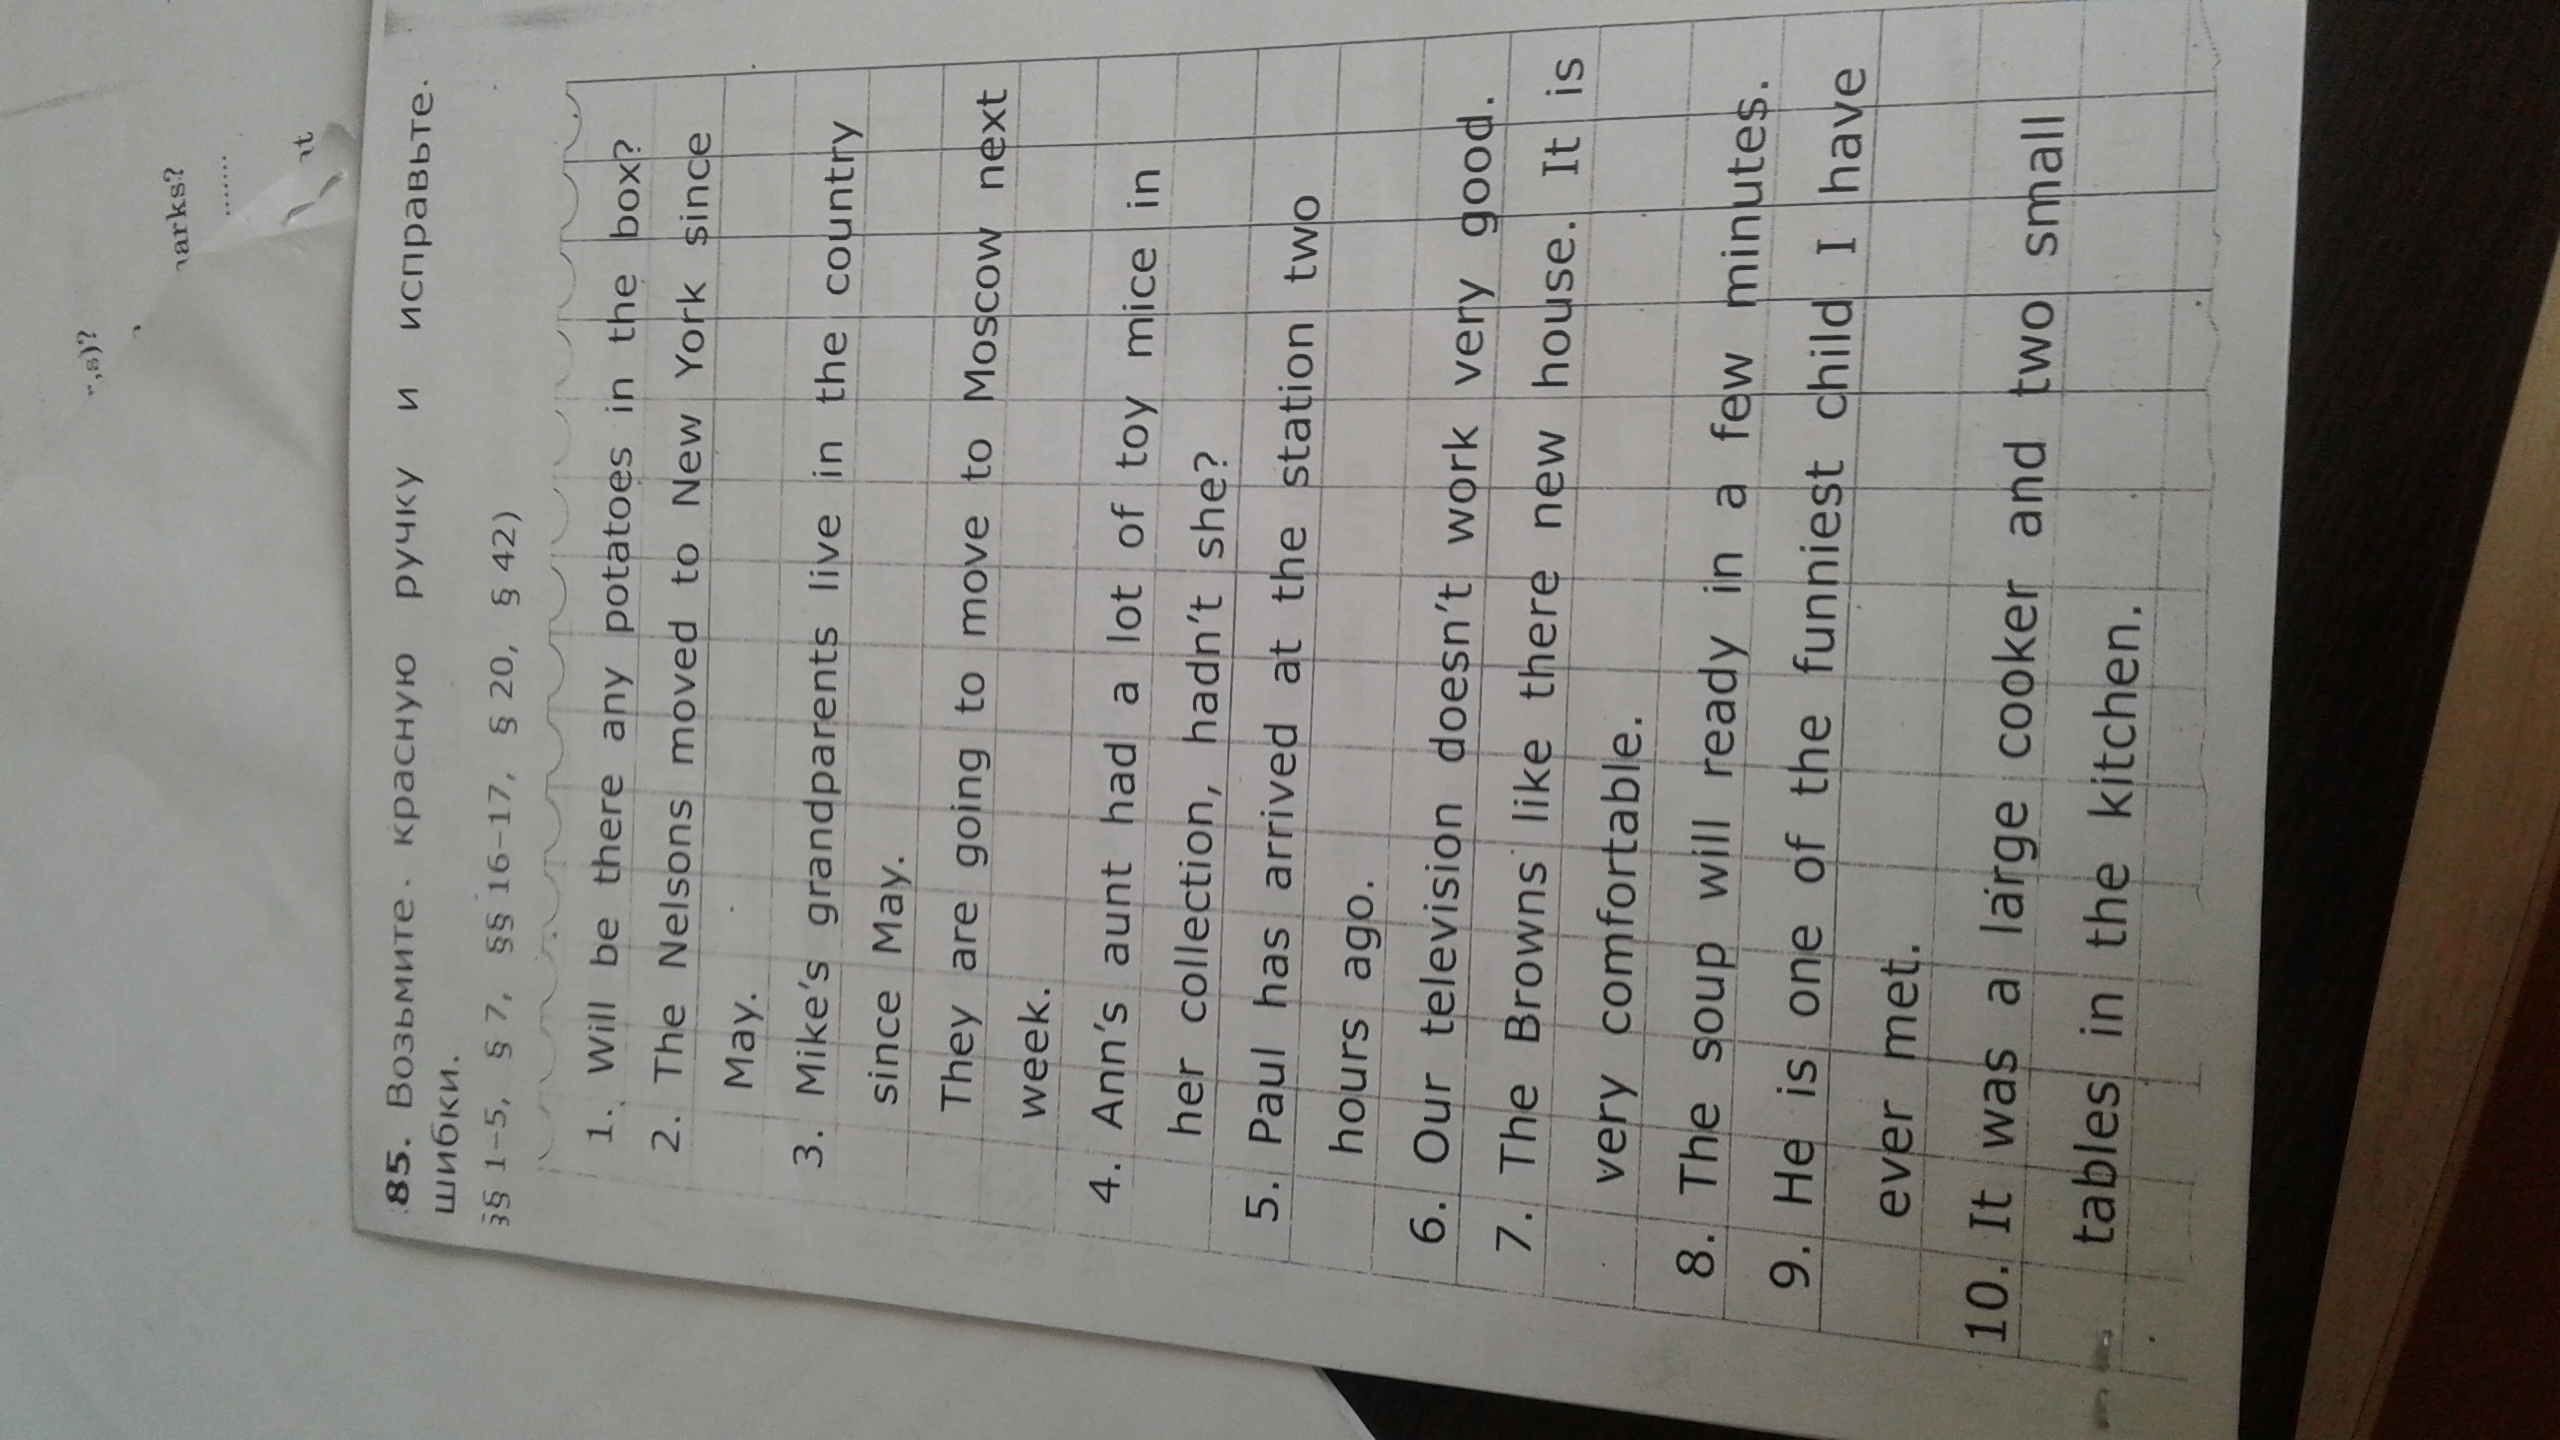 arks?
85. Возьмите красную ручку и исправьте
шибки.
§§ 1–5, § 7, §§ 16–17, § 20, § 42)
1. Will be there any potatoes in the box?
2. The Nelsons moved to New York since
May.
3. Mike's grandparents live in the country
since May.
They are going to move to Moscow next
week.
4. Ann's aunt had a lot of toy mice in
her collection, hadn't she?
5. Paul has arrived at the station two
hours ago.
6. Our television doesn't work very good.
7. The Browns like there new house. It is
very comfortable.
8. The soup will ready in a few minutes.
9. He is one of the funniest child I have
ever met.
10. It was a large cooker and two small
tables in the kitchen.